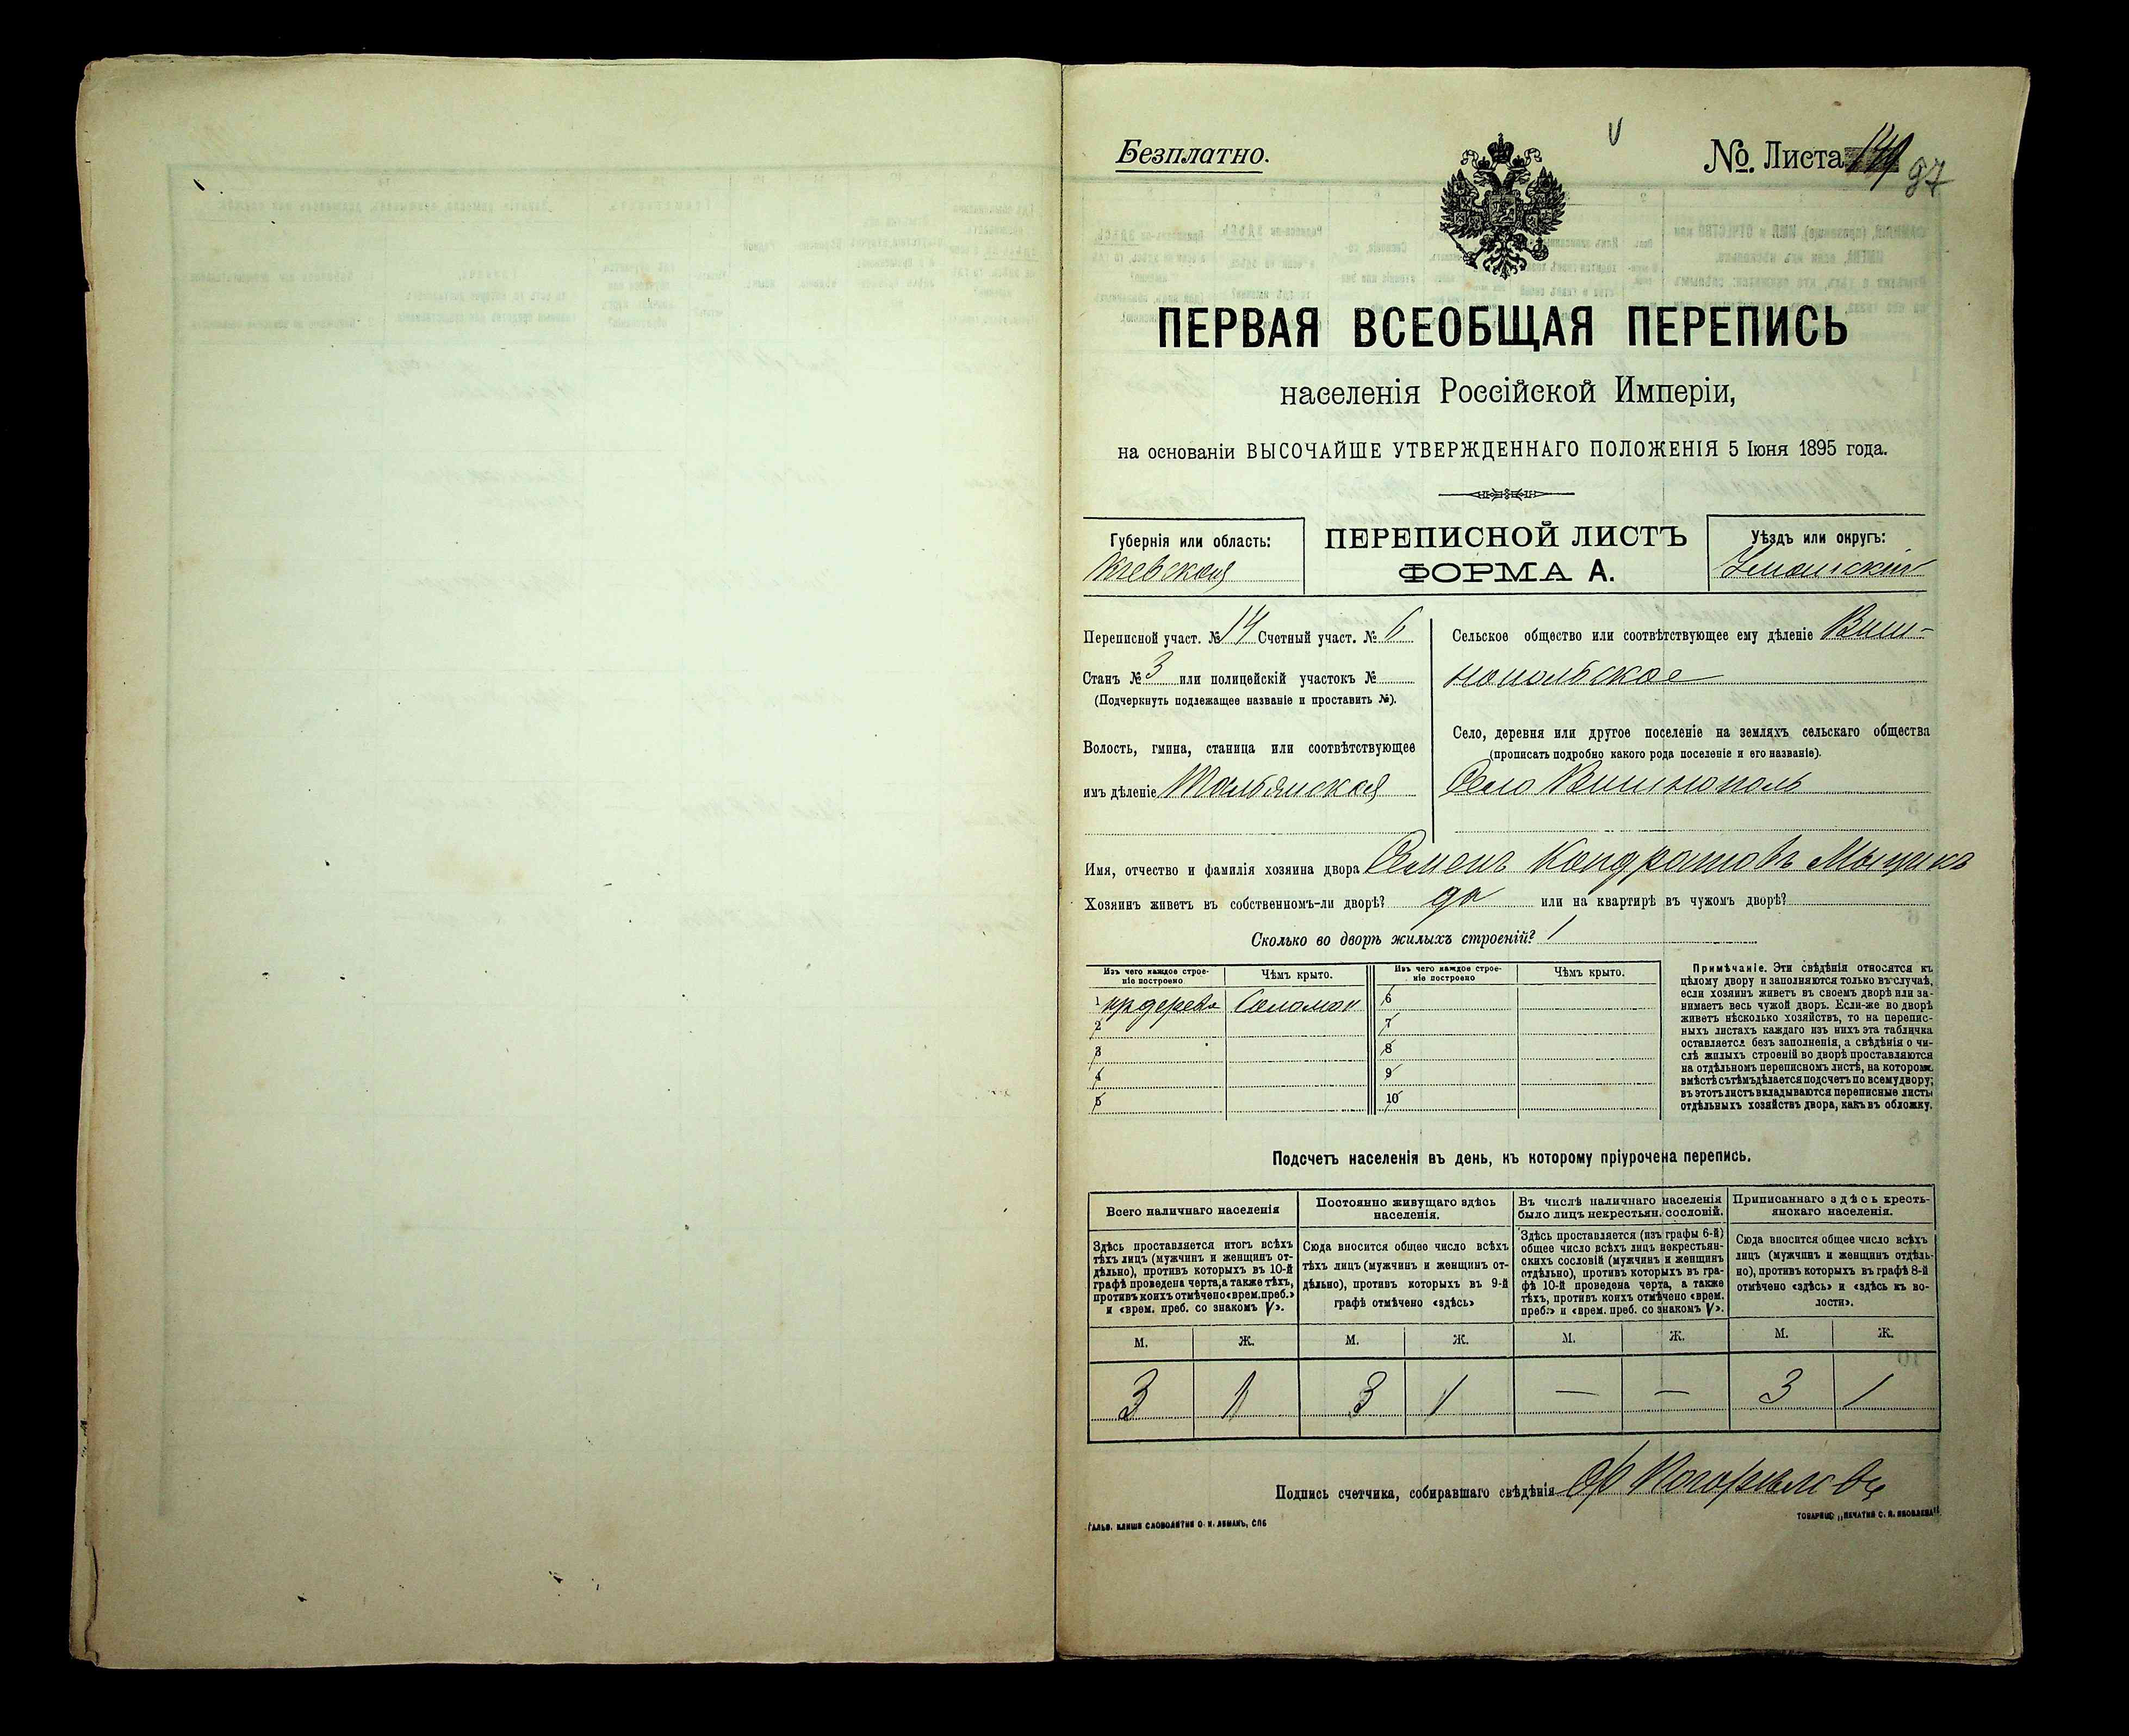 Безплатно.
№ Листа 149 97
ПЕРВАЯ ВСЕОБЩАЯ ПЕРЕПИСЬ
населенія Россійской Имперіи,
на основаніи ВЫСОЧАЙШЕ УТВЕРЖДЕННАГО ПОЛОЖЕНІЯ 5 Іюня 1895 года.
Губернія или область:
Кіевская
ПЕРЕПИСНОЙ ЛИСТЪ
ФОРМА А.
Уѣздъ или округъ:
Уманскій
Переписной участ. № 14 Счетный участ. № 6
Станъ № 3 или полицейскій участокъ №
(Подчеркнуть подлежащее названіе и проставить №).
Волость, гмина, станица или соотвѣтствующее
имъ дѣленіе Тальянская
Сельское общество или соотвѣтствующее ему дѣленіе Виш-
нопольское
Село, деревня или другое поселеніе на земляхъ сельскаго общества
(прописать подробно какого рода поселеніе и его названіе).
Село Вишнополь
Имя, отчество и фамилія хозяина двора Семенъ Кондратовъ
Хозяинъ живетъ въ собственномъ-ли дворѣ? да или на квартирѣ въ чужомъ дворѣ?
Сколько во дворѣ жилыхъ строеній? 1
Изъ чего каждое строе-
ніе построено
Чѣмъ крыто.
Изъ чего каждое строе-
ніе построено
Чѣмъ крыто.
1 дерева Соломой
2
3
4
5
6
7
8
9
10
Примѣчаніе. Эти свѣдѣнія относятся къ
цѣлому двору и заполняются только въ случаѣ,
если хозяинъ живетъ въ своемъ дворѣ или за-
нимаетъ весь чужой дворъ. Если-же во дворѣ
живетъ нѣсколько хозяйствъ, то на перепис-
ныхъ листахъ каждаго изъ нихъ эта табличка
оставляется безъ заполненія, а свѣдѣнія о чи-
слѣ жилыхъ строеній во дворѣ проставляются
на отдѣльномъ переписномъ листѣ, на которомъ
вмѣстѣ съ тѣмъ дѣлается подсчетъ по всему двору;
въ этотъ листъ вкладываются переписные листы
отдѣльныхъ хозяйствъ двора, какъ въ обложку.
Подсчетъ населенія въ день, къ которому пріурочена перепись.
Всего наличнаго населенія
Здѣсь проставляется итогъ всѣхъ
тѣхъ лицъ (мужчинъ и женщинъ от-
дѣльно), противъ которыхъ въ 10-й
графѣ проведена черта, а также тѣхъ,
противъ коихъ отмѣчено «врем. преб.»
и «врем. преб. со знакомъ V».
Постоянно живущаго здѣсь
населенія.
Сюда вносится общее число всѣхъ
тѣхъ лицъ (мужчинъ и женщинъ от-
дѣльно), противъ которыхъ въ 9-й
графѣ отмѣчено «здѣсь»
Въ числѣ наличнаго населенія
было лицъ некрестьян. сословій.
Здѣсь проставляется (изъ графы 6-й)
общее число всѣхъ лицъ некрестьян-
скихъ сословій (мужчинъ и женщинъ
отдѣльно), противъ которыхъ въ гра-
фѣ 10-й проведена черта, а также
тѣхъ, противъ коихъ отмѣчено «врем.
преб.» и «врем. преб. со знакомъ V».
Приписаннаго здѣсь кресть-
янскаго населенія.
Сюда вносится общее число всѣхъ
лицъ (мужчинъ и женщинъ отдѣль-
но), противъ которыхъ въ графѣ 8-й
отмѣчено «здѣсь» и «здѣсь къ во-
лости».
М. Ж. М. Ж. М. Ж. М. Ж.
3 1 3 1 — — 3 1
Подпись счетчика, собиравшаго свѣдѣнія
ГАЛЬВ. КЛИШЕ СЛОВОЛИТНИ О. И. ЛЕМАНЪ, СПБ
ТОВАРИЩ. „ПЕЧАТНЯ С. П. ЯКОВЛЕВА"